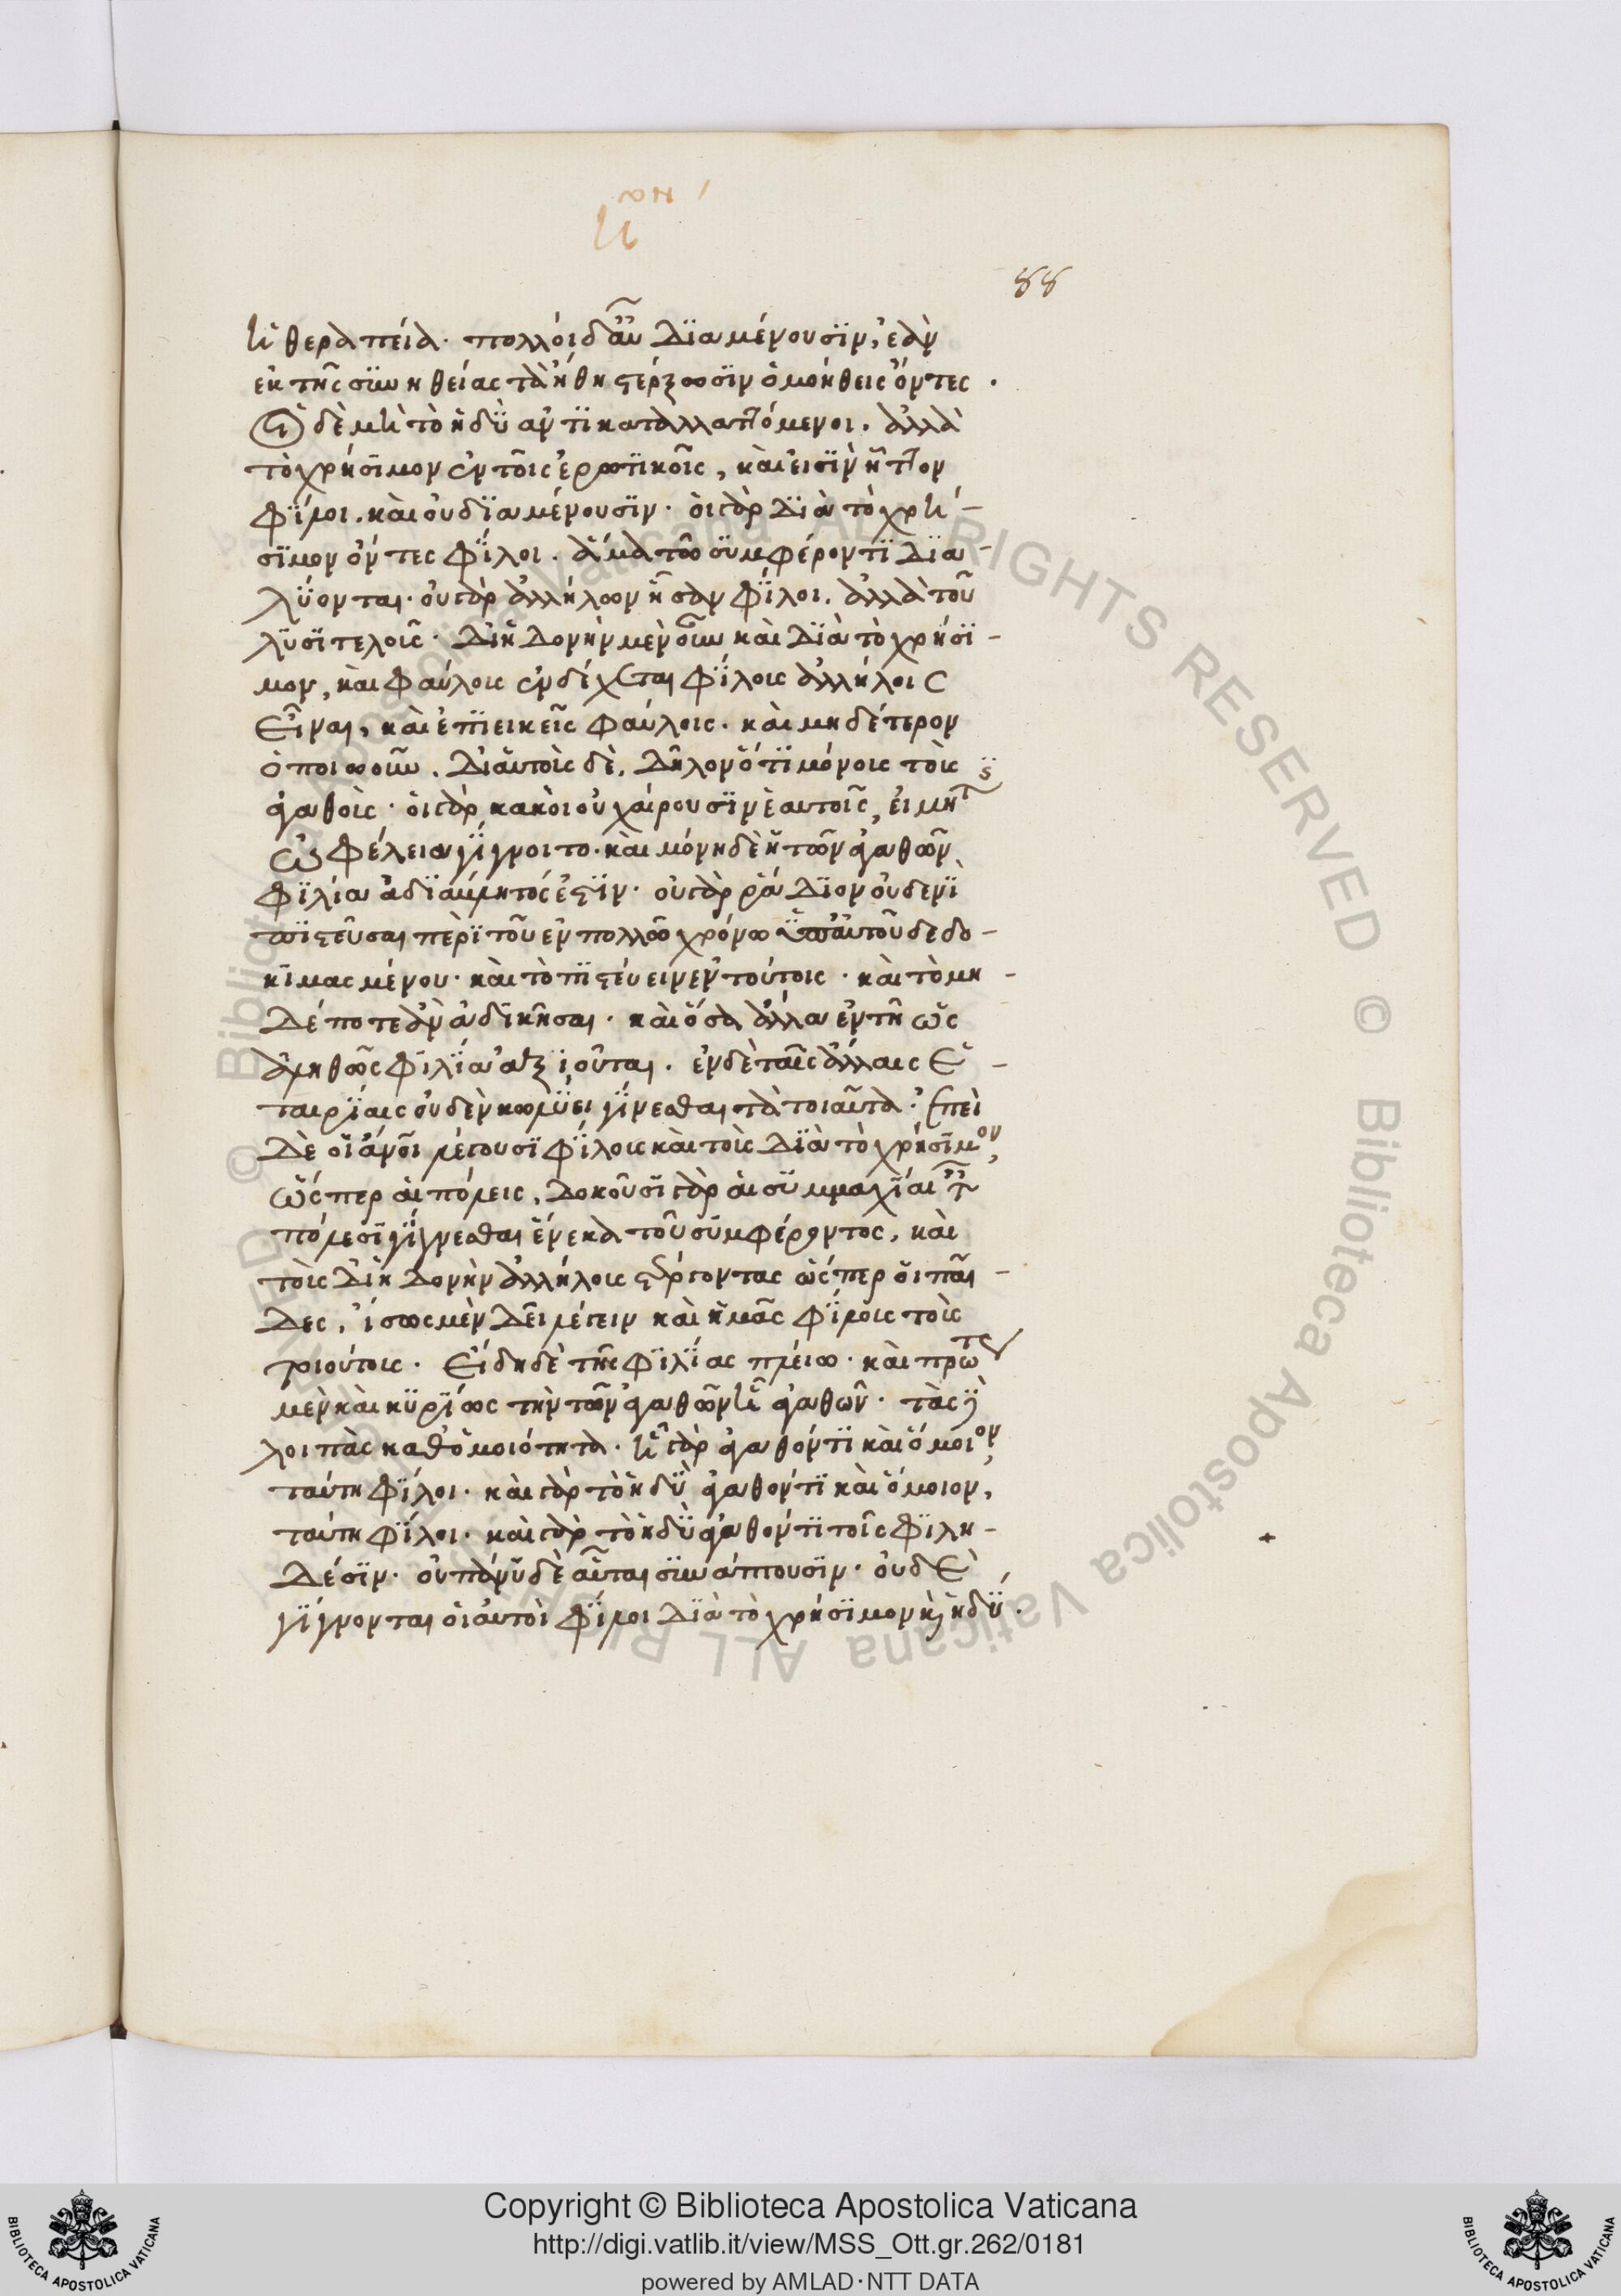 88
ἡ θεραπεία· πολλοὶ δ᾽ αὖ διαμένουσιν, ἐὰν
ἐκ τῆς συνηθείας τὰ ἤθη στέρξωσιν ὁμοήθεις ὄντες·
οἱ δὲ μὴ τὸ ἡδὺ ἀντικαταλλαττόμενοι. ἀλλὰ
τὸ χρήσιμον ἐν τοῖς ἐρωτικοῖς, καὶ εἰσὶν ἧττον
φίλοι. καὶ οὐ διαμένουσιν· οἱ γὰρ διὰ τὸ χρή-
σιμον ὄντες φίλοι. ἅμα τῶ συμφέροντι δια-
λύονται· οὐ γὰρ ἀλλήλων ἦσαν φίλοι. ἀλλὰ τοῦ
λυσιτελοῖς· δι᾽ ἡδονὴν μὲν οὖν καὶ διὰ τὸ χρήσι-
μον, καὶ φαύλοις ἐνδέχεται φίλοις ἀλλήλοις
εἶναι, καὶ ἐπιεικεῖς φαύλοις. καὶ μηδέτερον
ὁποιωοῦν. δι᾽ αὑτοὺς δὲ, δῆλον ὅτι μόνοις τοὺς
ἀγαθοὺς· οἱ γὰρ κακοὶ οὐ χαίρουσιν ἑαυτοῖς, εἰ μή τις
ὠφέλεια γίγνοιτο. καὶ μόνη δὲ ἡ τῶν ἀγαθῶν
φιλία ἀδιάβλητός ἐστιν· οὐ γὰρ ῥάδιον οὐδενὶ
πιστεῦσαι περὶ τοῦ ἐν πολλῶ χρόνω ὑπ᾽ αὐτοῦ δεδο-
κιμασμένου· καὶ τὸ πιστεύειν ἐν τούτοις· καὶ τὸ μη-
δέποτε ἂν ἀδικῆσαι· καὶ ὅσα ἄλλα ἐν τῆ ὡς
ἀληθῶς φιλία ἀξιοῦται. ἐν δὲ ταῖς ἄλλαις ἑ-
ταιρίαις οὐδὲν κωλύει γίνεσθαι τὰ τοιαῦτα· ἐπεὶ
δὲ οἱ ἄνοι λέγουσι φίλοις καὶ τοὺς διὰ τὸ χρήσιμον,
ὥσπερ αἱ πόλεις, δοκοῦσι γὰρ αἱ συμμαχίαι ταῖς
πόλεσι γίγνεσθαι ἕνεκα τοῦ συμφέροντος, καὶ
τοὺς δι᾽ ἡδονὴν ἀλλήλοις στέργοντας ὥσπερ οἱ παῖ-
δες, ἴσως μὲν δεῖ λέγειν καὶ ἡμᾶς φίλοις τοὺς
τοιούτοις. εἴδη δὲ τῆς φιλίας πλείω· καὶ πρώτως
μὲν καὶ κυρίως τὴν τῶν ἀγαθῶν ἧ ἀγαθῶν· τὰς δὲ
λοιπὰς καθ᾽ ὁμοιότητα· ἧ γὰρ ἀγαθόν τι καὶ ὅμοιον,
ταύτη φίλοι· καὶ γὰρ τὸ ἡδὺ ἀγαθόν τι καὶ ὅμοιον,
ταύτη φίλοι· καὶ γὰρ τὸ ἡδὺ ἀγαθόν τι τοῖς φιλη-
δέσιν· οὐ πάνυ δὲ αὗται συνάπτουσιν· οὐδὲ
γίγνονται οἱ αὐτοὶ φίλοι διὰ τὸ χρήσιμον καὶ ἡδύ.
© Biblioteca Apostolica Vaticana ALL RIGHTS RESERVED © Biblioteca Apostolica Vaticana ALL RIGHTS RESERVED
Copyright © Biblioteca Apostolica Vaticana
http://digi.vatlib.it/view/MSS_Ott.gr.262/0181
powered by AMLAD·NTT DATA
BIBLIOTECA APOSTOLICA VATICANA
BIBLIOTECA APOSTOLICA VATICANA